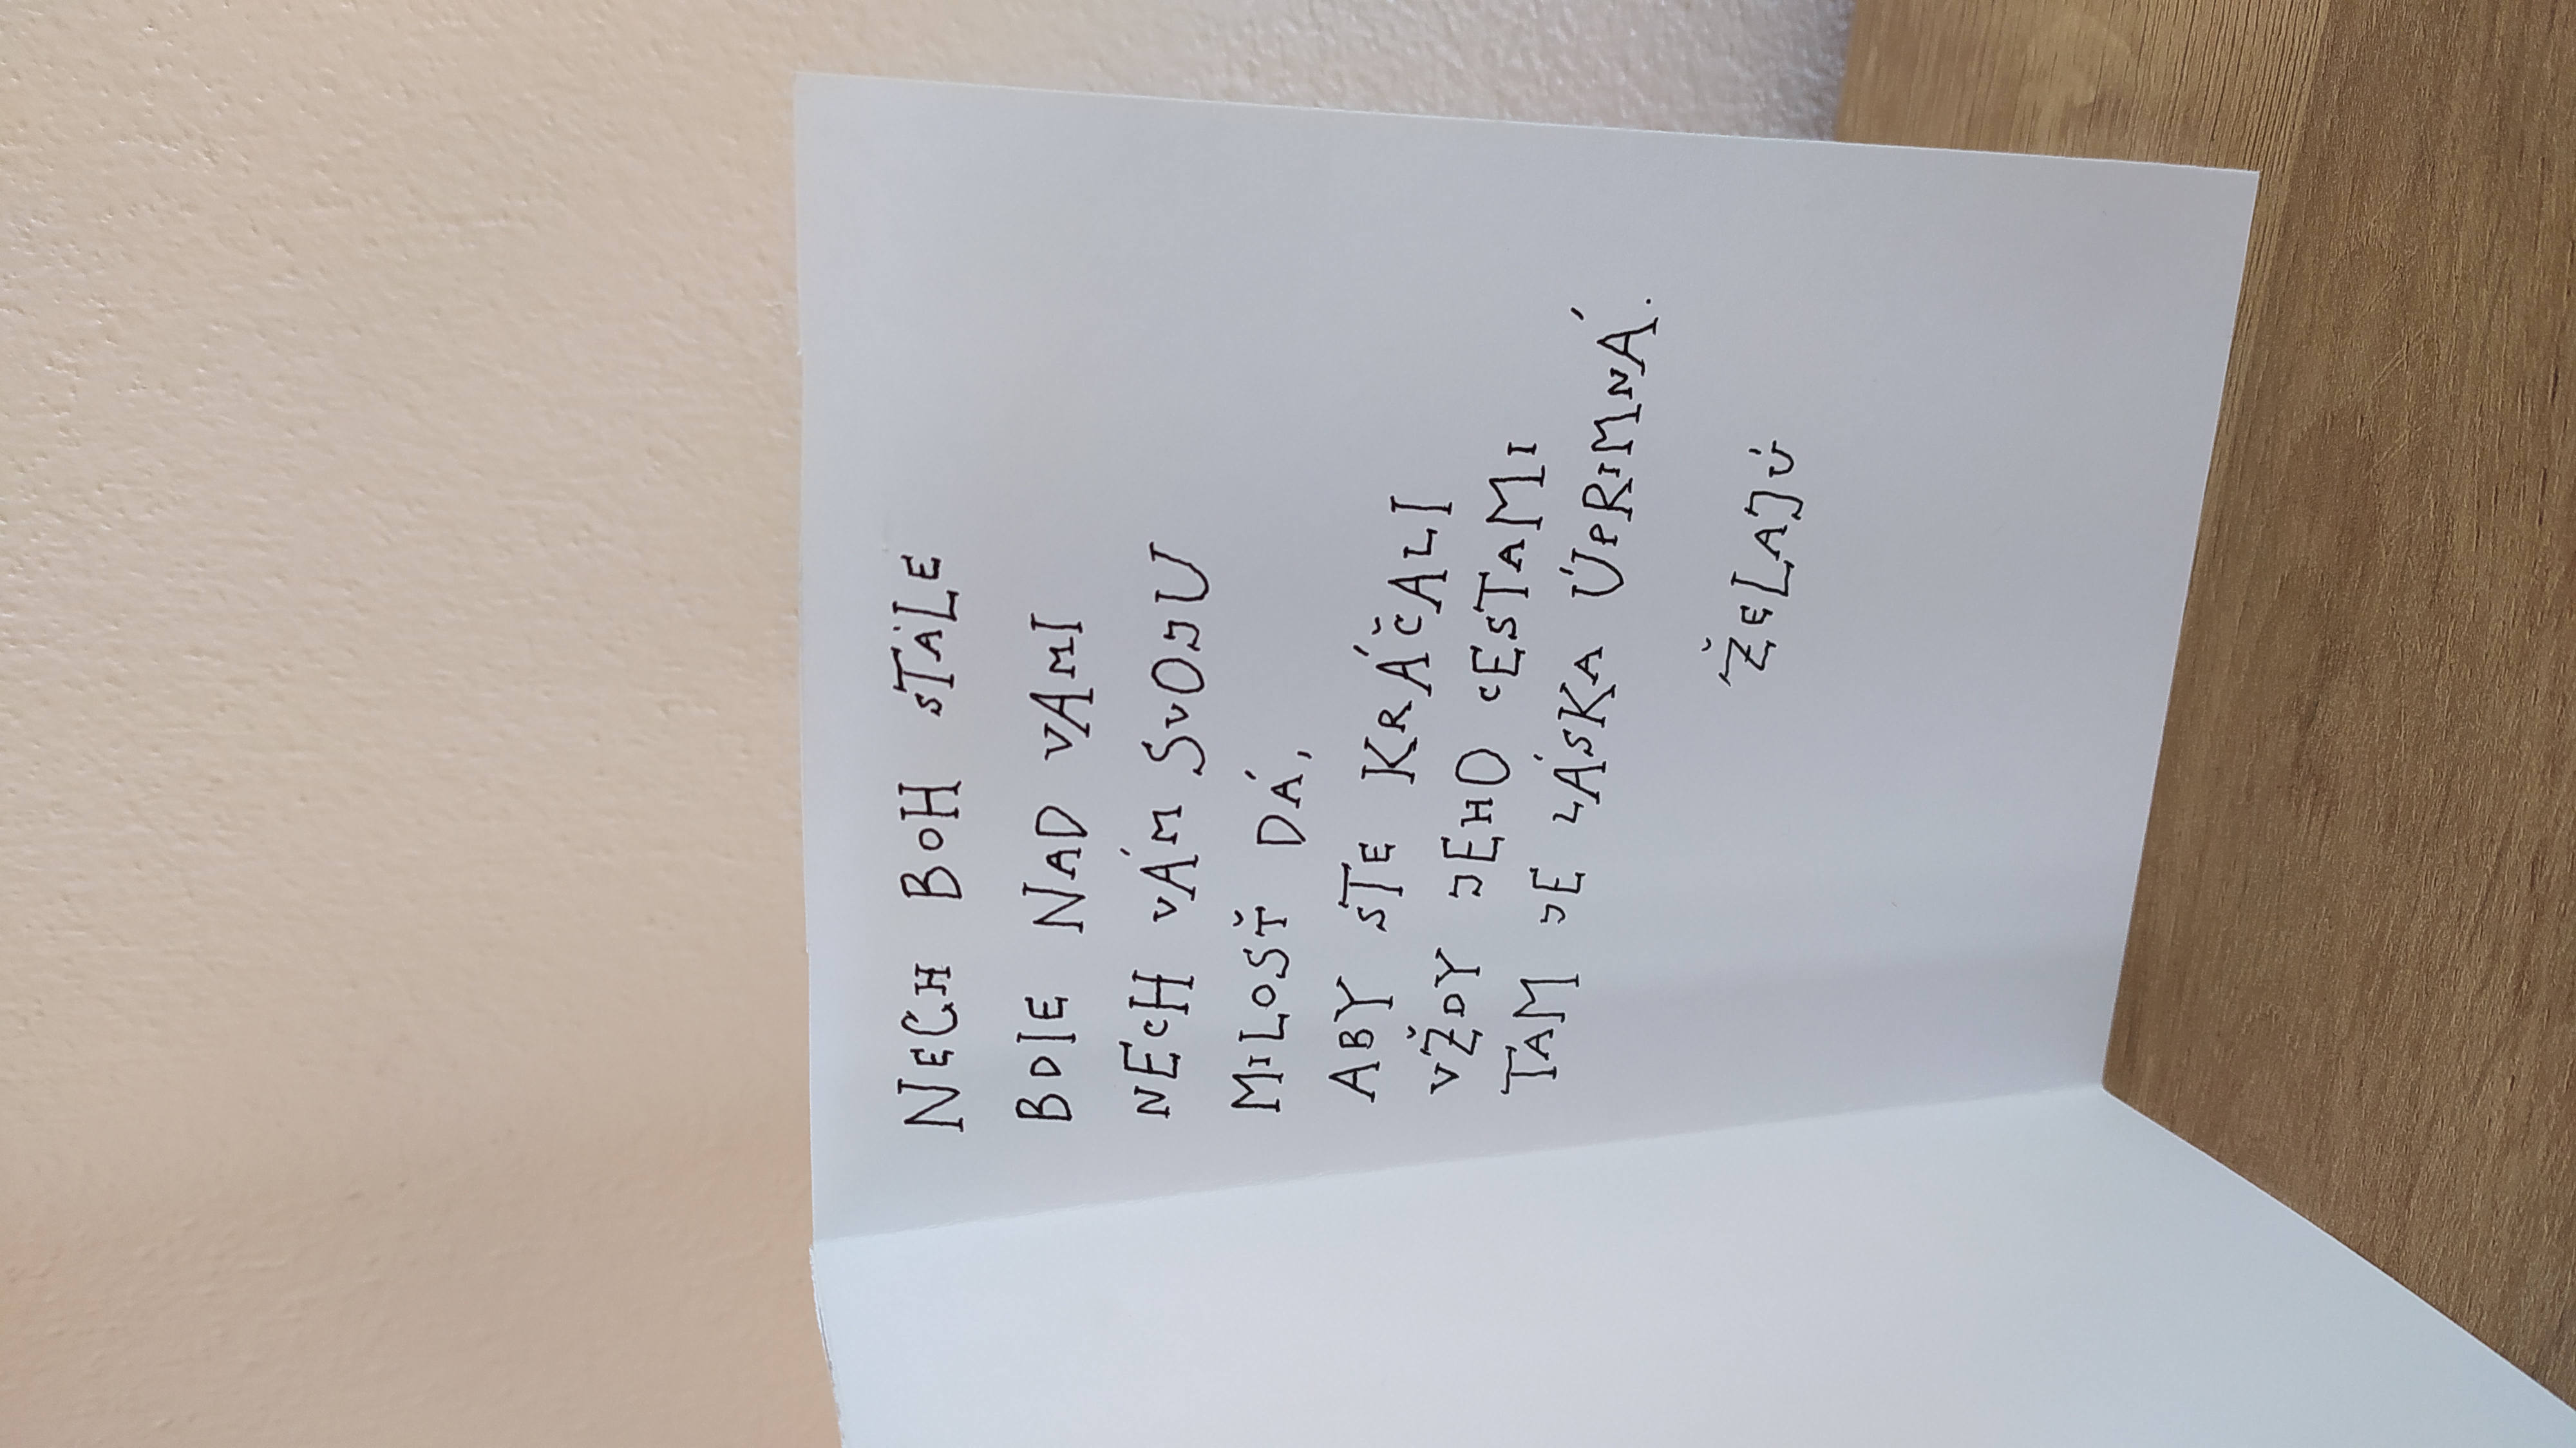 NECH BOH STÁLE
BDIE NAD VAMI
NECH VÁM SVOJU
MILOSŤ DÁ,
ABY STE KRÁČALI
VŽDY JEHO CESTAMI
TAM JE LÁSKA ÚPRIMNÁ.
ŽELAJÚ